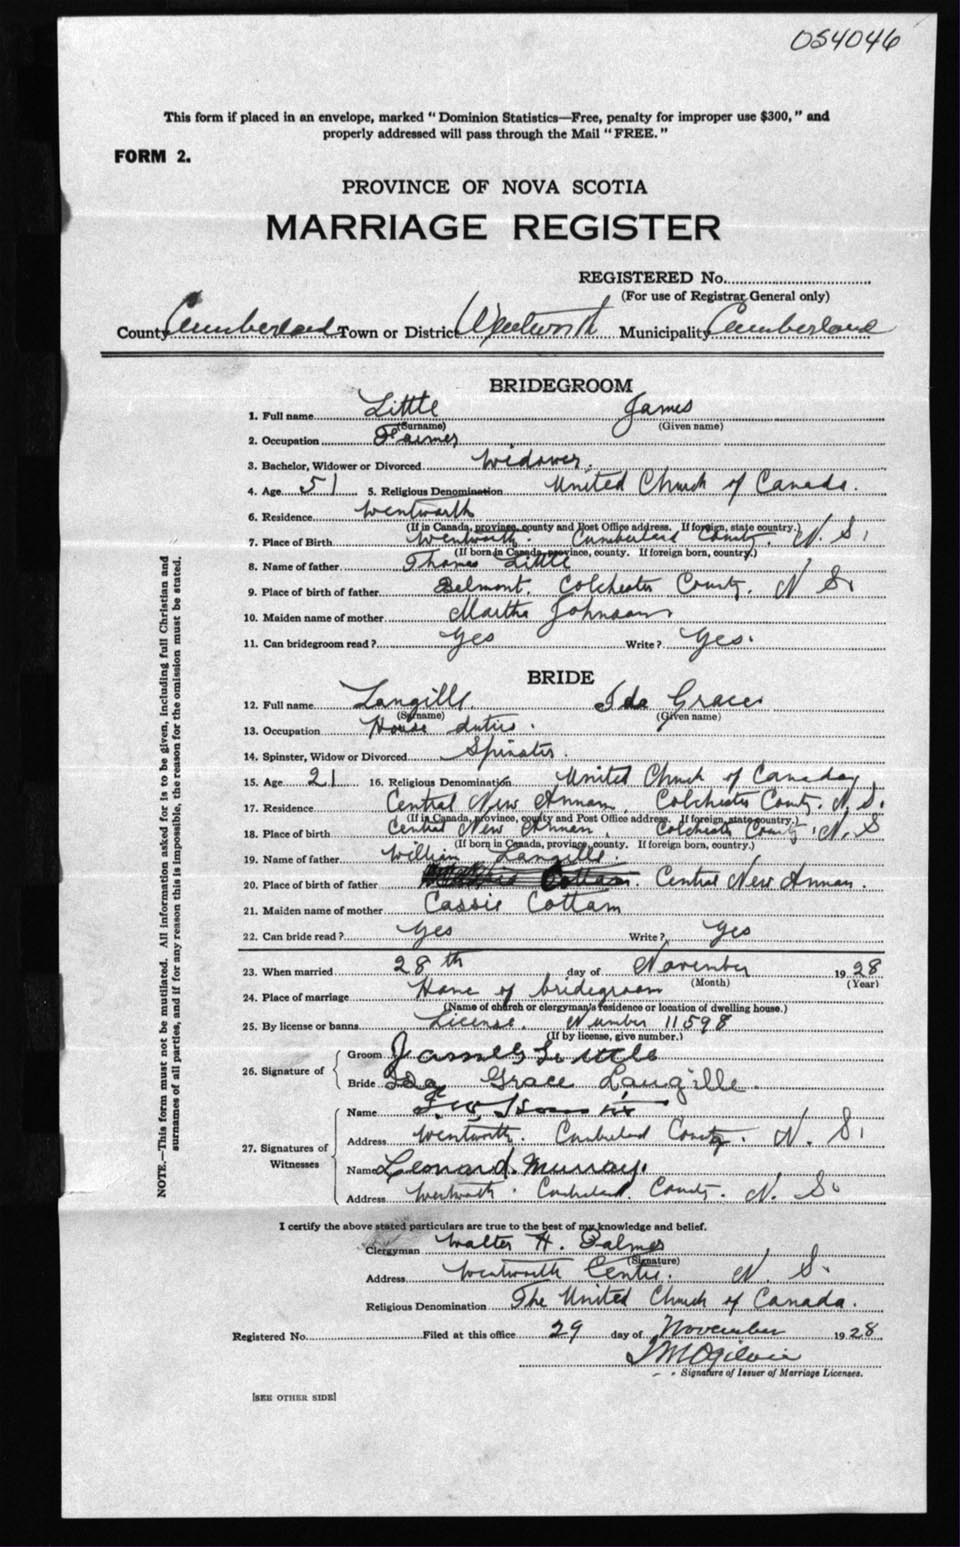 054046
This form if placed in an envelope, marked "Dominion Statistics—Free, penalty for improper use $300," and
properly addressed will pass through the Mail "FREE."
FORM 2.
PROVINCE OF NOVA SCOTIA
MARRIAGE REGISTER
REGISTERED No.
(For use of Registrar General only)
County Cumberland Town or District Wentworth Municipality Cumberland
BRIDEGROOM
1. Full name Little James
(Surname) (Given name)
2. Occupation Farmer
3. Bachelor, Widower or Divorced Widower.
4. Age 51 5. Religious Denomination United Church of Canada.
6. Residence Wentworth
(If in Canada, province, county and Post Office address. If foreign, state country.)
7. Place of Birth Wentworth. Cumberland County. N. S.
(If born in Canada, province, county. If foreign born, country.)
8. Name of father Thomas Little
9. Place of birth of father Belmont. Colchester County. N S.
10. Maiden name of mother Martha Johnson
11. Can bridegroom read? Yes Write? Yes.
BRIDE
12. Full name Langille. Ida Grace
(Surname) (Given name)
13. Occupation House duties.
14. Spinster, Widow or Divorced Spinster.
15. Age 21 16. Religious Denomination United Church of Canada
17. Residence Central New Annan, Colchester County. N. S.
(If in Canada, province, county and Post Office address. If foreign, state country.)
18. Place of birth Central New Annan, Colchester County. N. S
(If born in Canada, province, county. If foreign born, country.)
19. Name of father William Langille
20. Place of birth of father Cottam. Central New Annan.
21. Maiden name of mother Cassie Cottam
22. Can bride read? Yes Write? Yes
23. When married 28th day of November 1928
(Month) (Year)
24. Place of marriage Home of bridegroom
(Name of church or clergyman's residence or location of dwelling house.)
25. By license or banns License. Number 11598
(If by license, give number.)
26. Signature of Groom James Little
Bride Ida Grace Langille.
27. Signatures of Witnesses
Name F. W.
Address Wentworth. Cumberland County. N. S.
Name Leonard Murray.
Address Wentworth. Cumberland. County. N. S.
I certify the above stated particulars are true to the best of my knowledge and belief.
Clergyman Walter H. Palmer
(Signature)
Address Wentworth Centre. N. S.
Religious Denomination The United Church of Canada.
Registered No. Filed at this office 29 day of November 1928
Ogilvie
Signature of Issuer of Marriage Licenses.
[SEE OTHER SIDE]
NOTE.—This form must not be mutilated. All information asked for is to be given, including full Christian and
surnames of all parties, and if for any reason this is impossible, the reason for the omission must be stated.